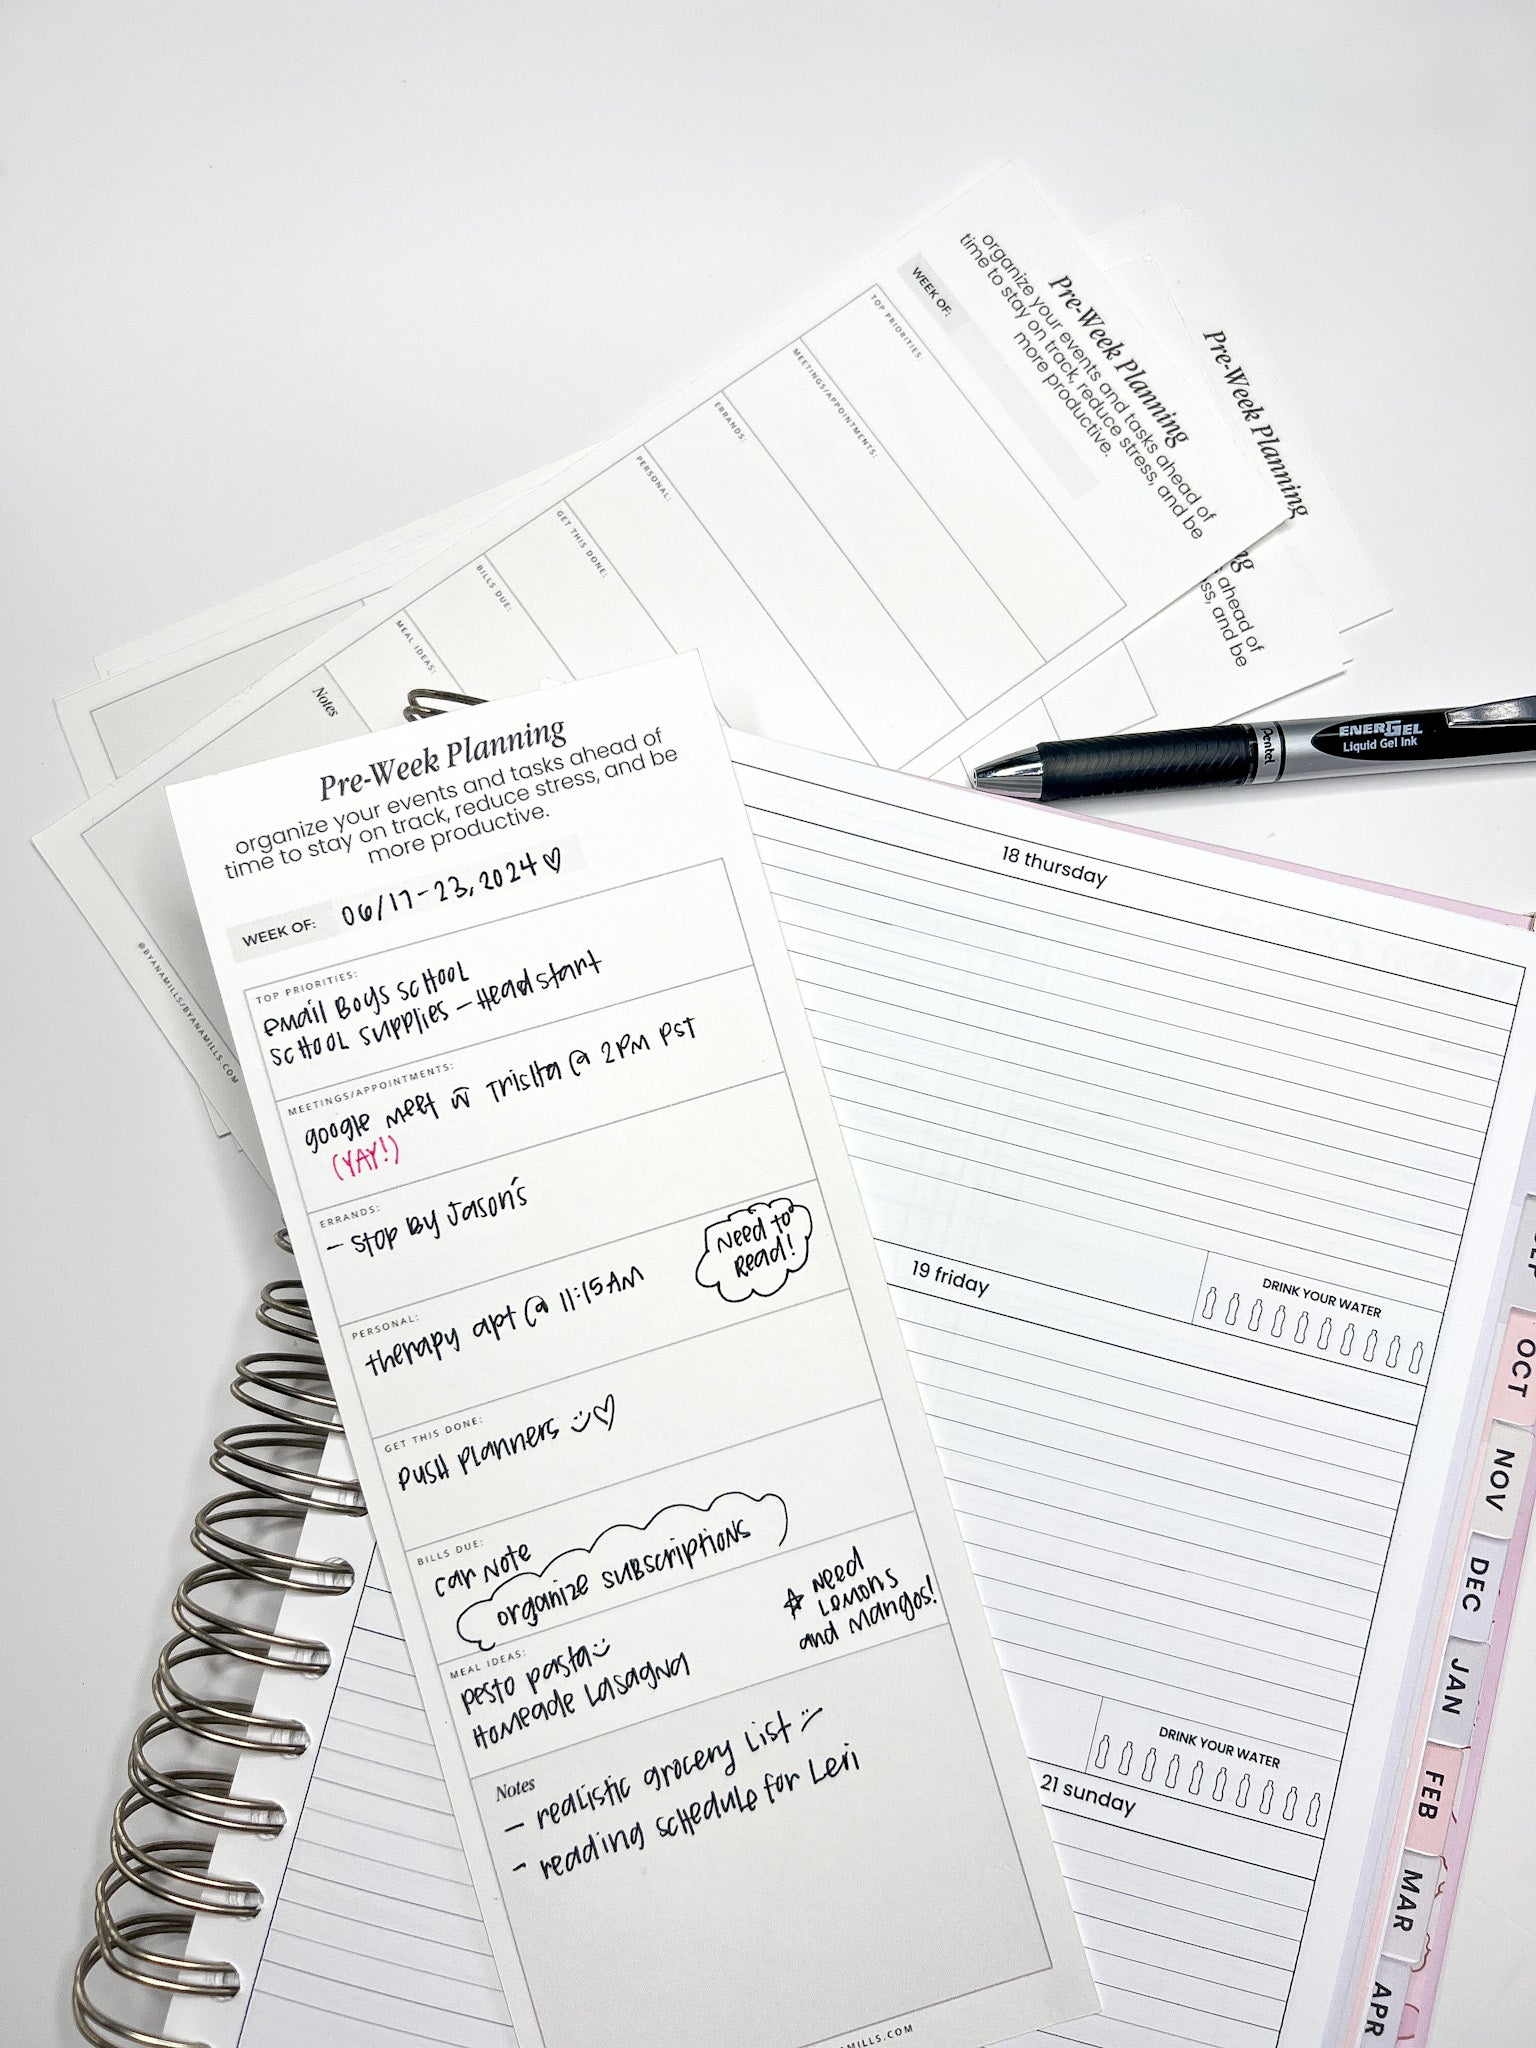 Pre-Week Planning
organize your events and tasks ahead of
time to stay on track, reduce stress, and be
more productive.
WEEK OF:
TOP PRIORITIES:
MEETINGS/APPOINTMENTS:
ERRANDS:
PERSONAL:
GET THIS DONE:
BILLS DUE:
MEAL IDEAS:
Notes
Pre-Week Planning
ahead of
and be
@BYANAMILLS/BYANAMILLS.COM
ENERGEL
Liquid Gel Ink
Pentel
Pre-Week Planning
organize your events and tasks ahead of
time to stay on track, reduce stress, and be
more productive.
WEEK OF: 06/17-23, 2024 ♡
TOP PRIORITIES:
Email Boys SCHOOL
SCHOOL Supplies - Headstart
MEETINGS/APPOINTMENTS:
google meet w Trisha @ 2PM PST
(YAY!)
ERRANDS:
- Stop By Jason's
PERSONAL:
Need to
Read!
therapy apt @ 11:15AM
GET THIS DONE:
PUSH Planners :) ♡
BILLS DUE:
car Note
organize subscriptions
MEAL IDEAS:
☆ Need
Lemons
and Mangos!
Pesto pasta :)
Homeade Lasagna
Notes
- realistic grocery List :)
- reading schedule for Leri
MILLS.COM
18 thursday
19 friday
DRINK YOUR WATER
DRINK YOUR WATER
21 sunday
SEP
OCT
NOV
DEC
JAN
FEB
MAR
APR